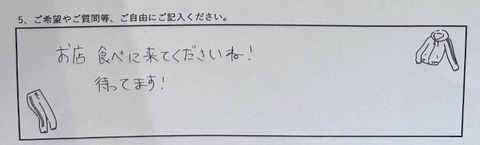 5、ご希望やご質問等、ご自由にご記入ください。
お店 食べに来てくださいね!
待ってます!